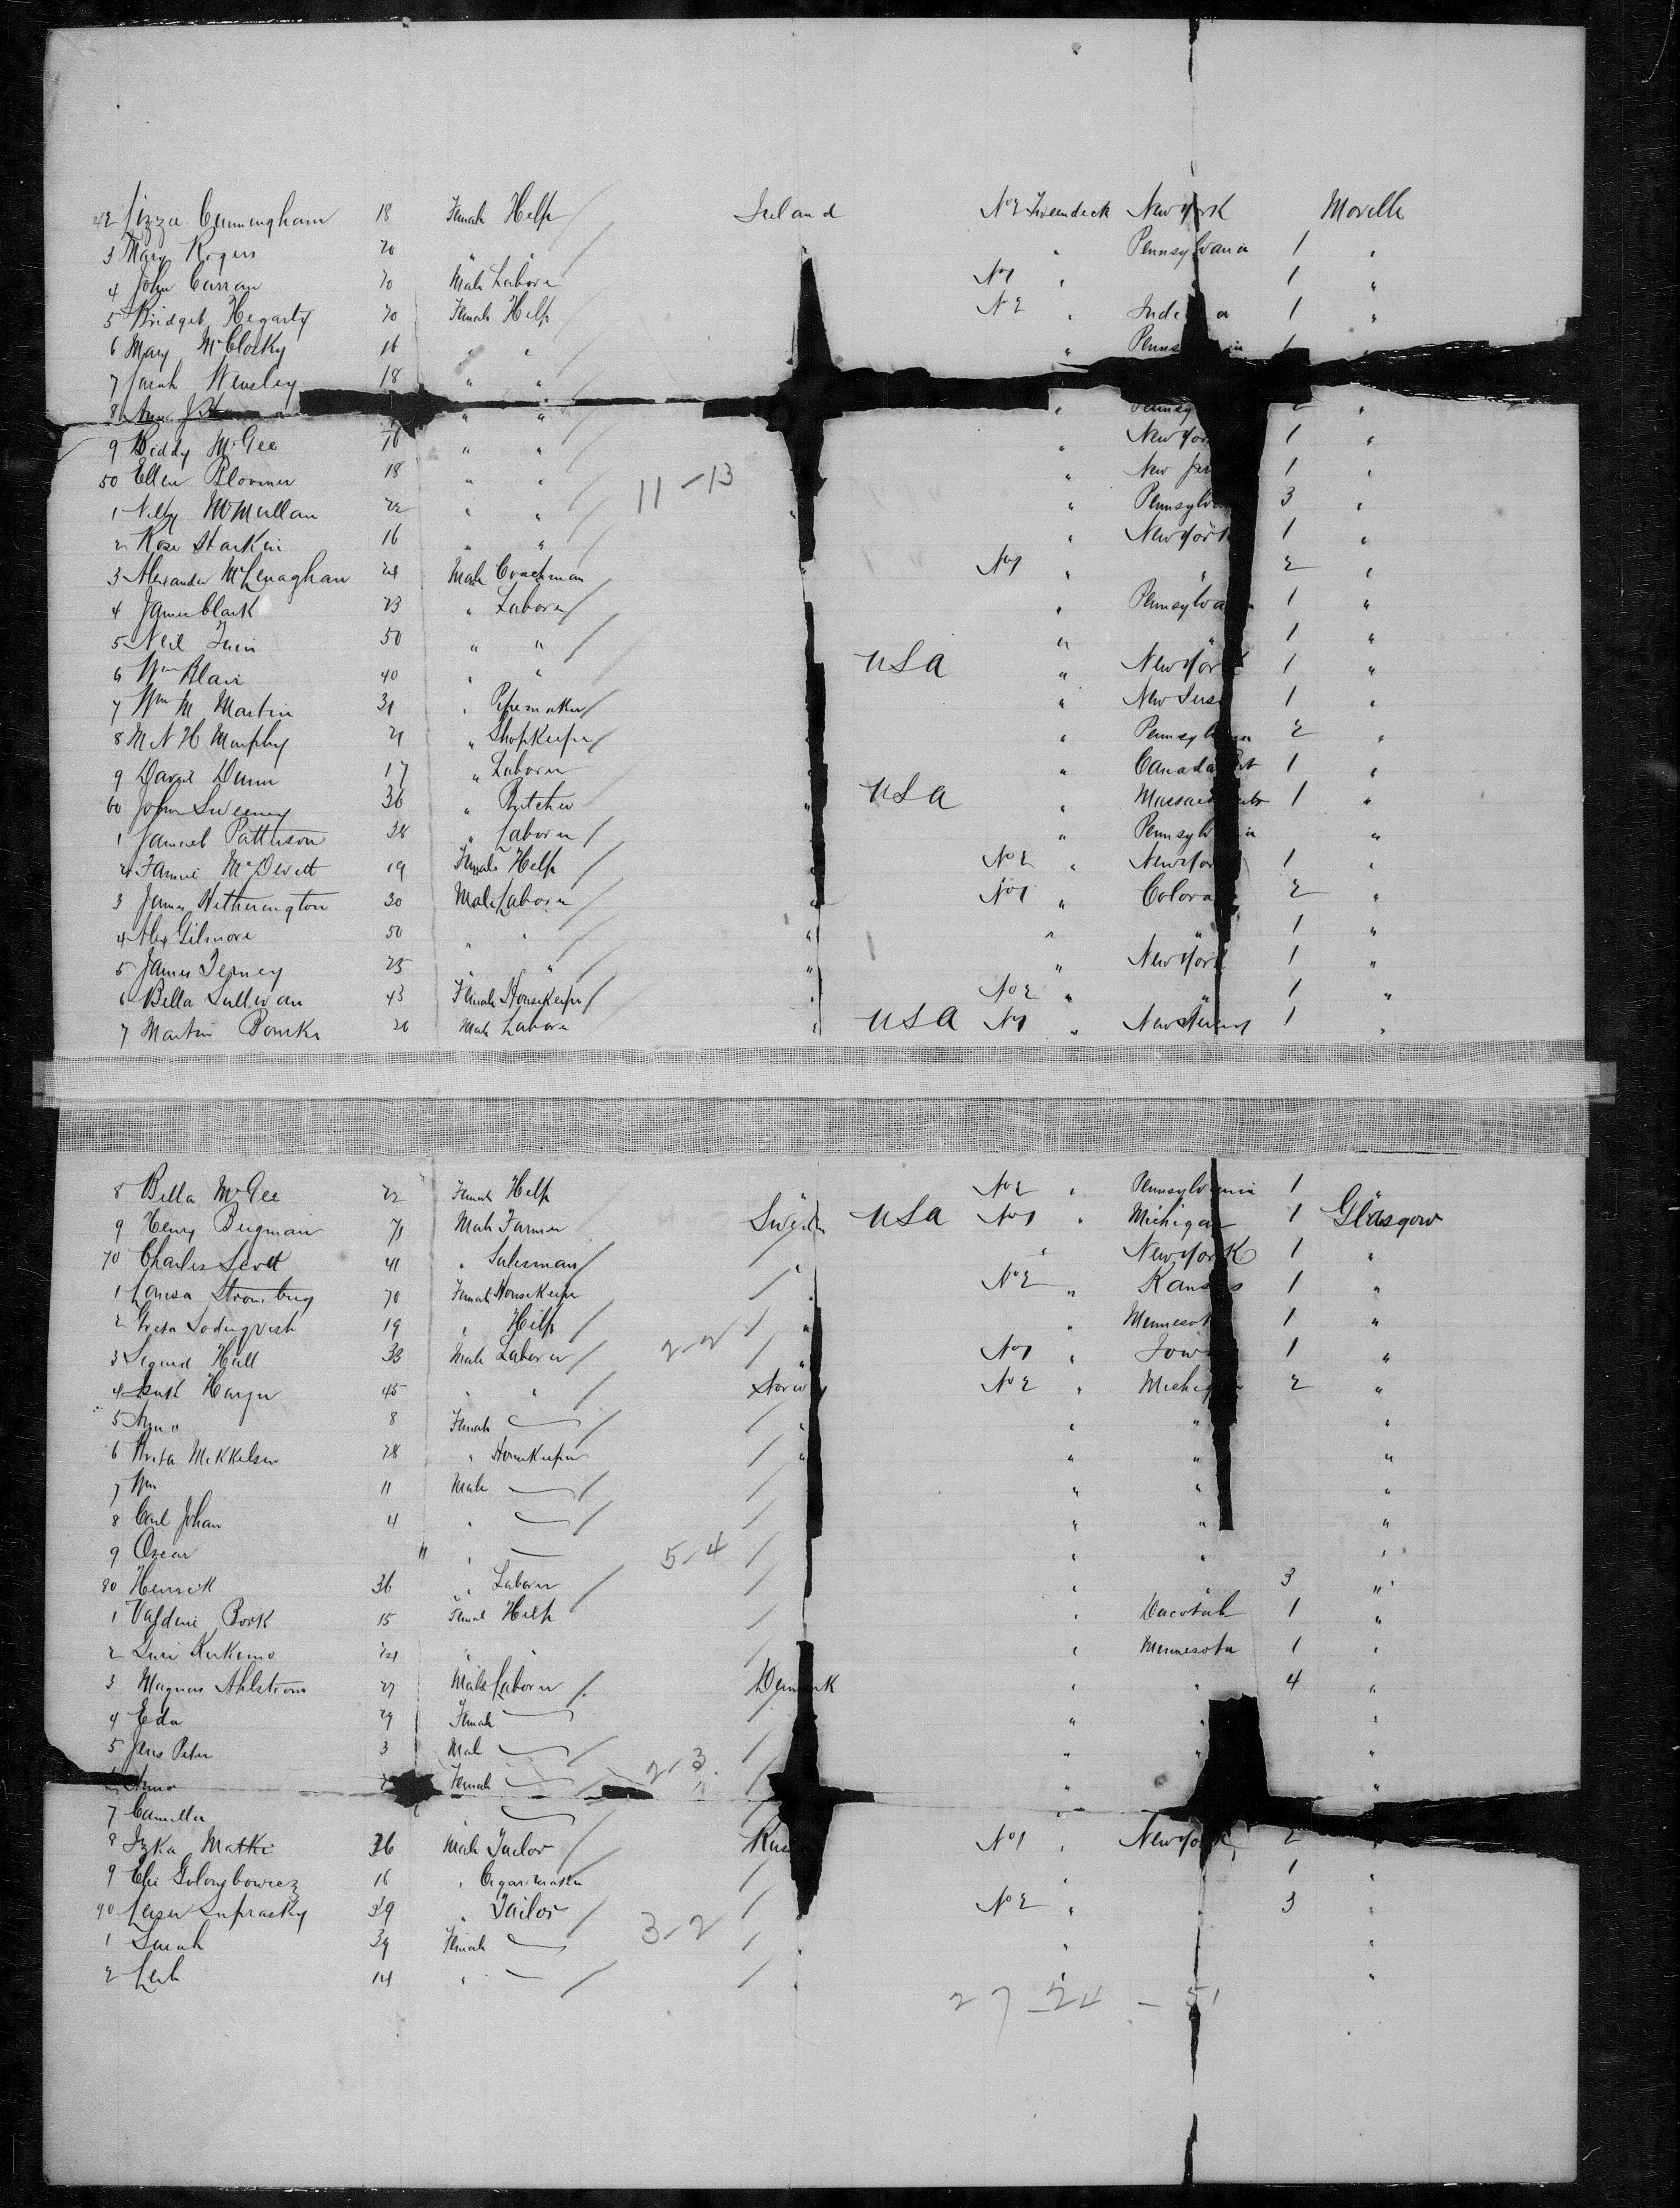 42 Lizzie Cunningham 18 Female Help Ireland No 2 Tweendeck New York Moville
3 Mary Rogers 20 " " " " Pennsylvania 1 "
4 John Curran 20 Male Laborer No 1 " 1 "
5 Bridget Hegarty 20 Female Help No 2 " Indi a 1 "
6 Mary McClosky 16 " " " Penns ia 1
7 Sarah Wensley 18 " "
8 Ann " " " Pennsy 2 "
9 Biddy McGee 16 " " " New York 1 "
50 Ellen 18 " " " New Jer 1 "
11-13
1 Nelly McMullan 22 " " " " Pennsylva 3 "
2 Rose 16 " " " New York 1 "
3 Alexander McLenaghan 24 Male Coachman " No 1 " " 2 "
4 James Clark 23 " Laborer " Pennsylva 1 "
5 Neil 50 " " " " 1 "
6 Wm Blair 40 " " USA " New York 1 "
7 Wm M Martin 31 " Pipemaker " New Jerse 1 "
8 M N H Murphy 21 " Shopkeeper " Pennsylvania 2 "
9 Daniel Dunn 17 " Laborer " Canada 1 "
60 John Sweeney 36 " Butcher " USA " Massachusetts 1 "
1 Samuel Patterson 38 " Laborer " Pennsylvania "
2 Fannie McDevitt 19 Female Help No 2 " New York 1 "
3 James Hetherington 30 Male Laborer " No 1 " Colora 2 "
4 Alex Gilmore 50 " " " " " 1 "
5 James 25 " " " " New York 1 "
6 Bella Sullivan 43 Female Housekeeper " No 2 " " 1 "
7 Martin Bourke 20 Male Laborer " USA No 1 " New Jersey 1 "
8 Bella McGee 22 Female Help No 2 " Pennsylvania 1 "
9 Henry Bergman 71 Male Farmer Sweden USA No 1 " Michigan 1 Glasgow
70 Charles Scott 41 " Salesman " " New York 1 "
1 Louisa Stromberg 70 Female Housekeeper " No 2 " Kansas 1 "
2 Greta Soderqvist 19 " Help " " Minnesot 1 "
2-2
3 Sigurd Hall 33 Male Laborer " No 1 " Iowa 1 "
4 45 " " Norway No 2 " Michigan 2 "
5 " 8 Female — " " " "
6 Mekkelsen 28 " Housekeeper " " " "
7 Wm 11 Male — " " "
8 Carl Johan 4 " — " " "
9 Oscar " " — " " "
5-4
80 Henrick 36 " Laborer " " 3 "
1 Bork 15 Female Help " Dacotah 1 "
2 24 " " " Minnesota 1 "
3 Magnus Ahlstrom 27 Male Laborer Denmark " " 4 "
4 Eda 29 Female — " " "
5 Jens Peter 3 Male — " " "
2-3
6 Anna Female — " "
7 Camilla " — "
8 36 Male Tailor Rus No 1 " New York 2 "
9 Eli 16 " Cigarmaker " " 1 "
90 39 " Tailor No 2 " " 3 "
3-2
1 Sarah 39 Female — " " "
2 Leib 14 " — " " "
27-24-51